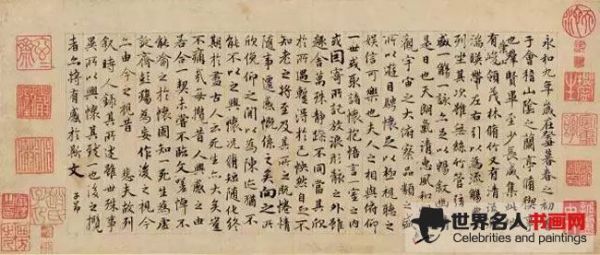 永和九年歲在癸丑暮春之初會
于會稽山陰之蘭亭脩稧事
也羣賢畢至少長咸集此地
有崇山峻領茂林脩竹又有清流激
湍暎帶左右引以為流觴曲水
列坐其次雖無絲竹管弦之
盛一觴一詠亦足以暢敘幽情
是日也天朗氣清惠風和暢仰
觀宇宙之大俯察品類之盛
所以遊目騁懷足以極視聽之
娛信可樂也夫人之相與俯仰
一世或取諸懷抱悟言一室之內
或因寄所託放浪形骸之外雖
趣舍萬殊靜躁不同當其欣
於所遇暫得於己怏然自足不
知老之將至及其所之既惓情
隨事遷感慨係之矣向之所
欣俛仰之閒以為陳迹猶不
能不以之興懷況脩短隨化終
期於盡古人云死生亦大矣豈
不痛哉每攬昔人興感之由
若合一契未嘗不臨文嗟悼不
能喻之於懷固知一死生為虛
誕齊彭殤為妄作後之視今
亦由今之視昔悲夫故列
敘時人錄其所述雖世殊事
異所以興懷其致一也後之攬
者亦將有感於斯文
子昂
世界名人书画网
Celebrities and paintings